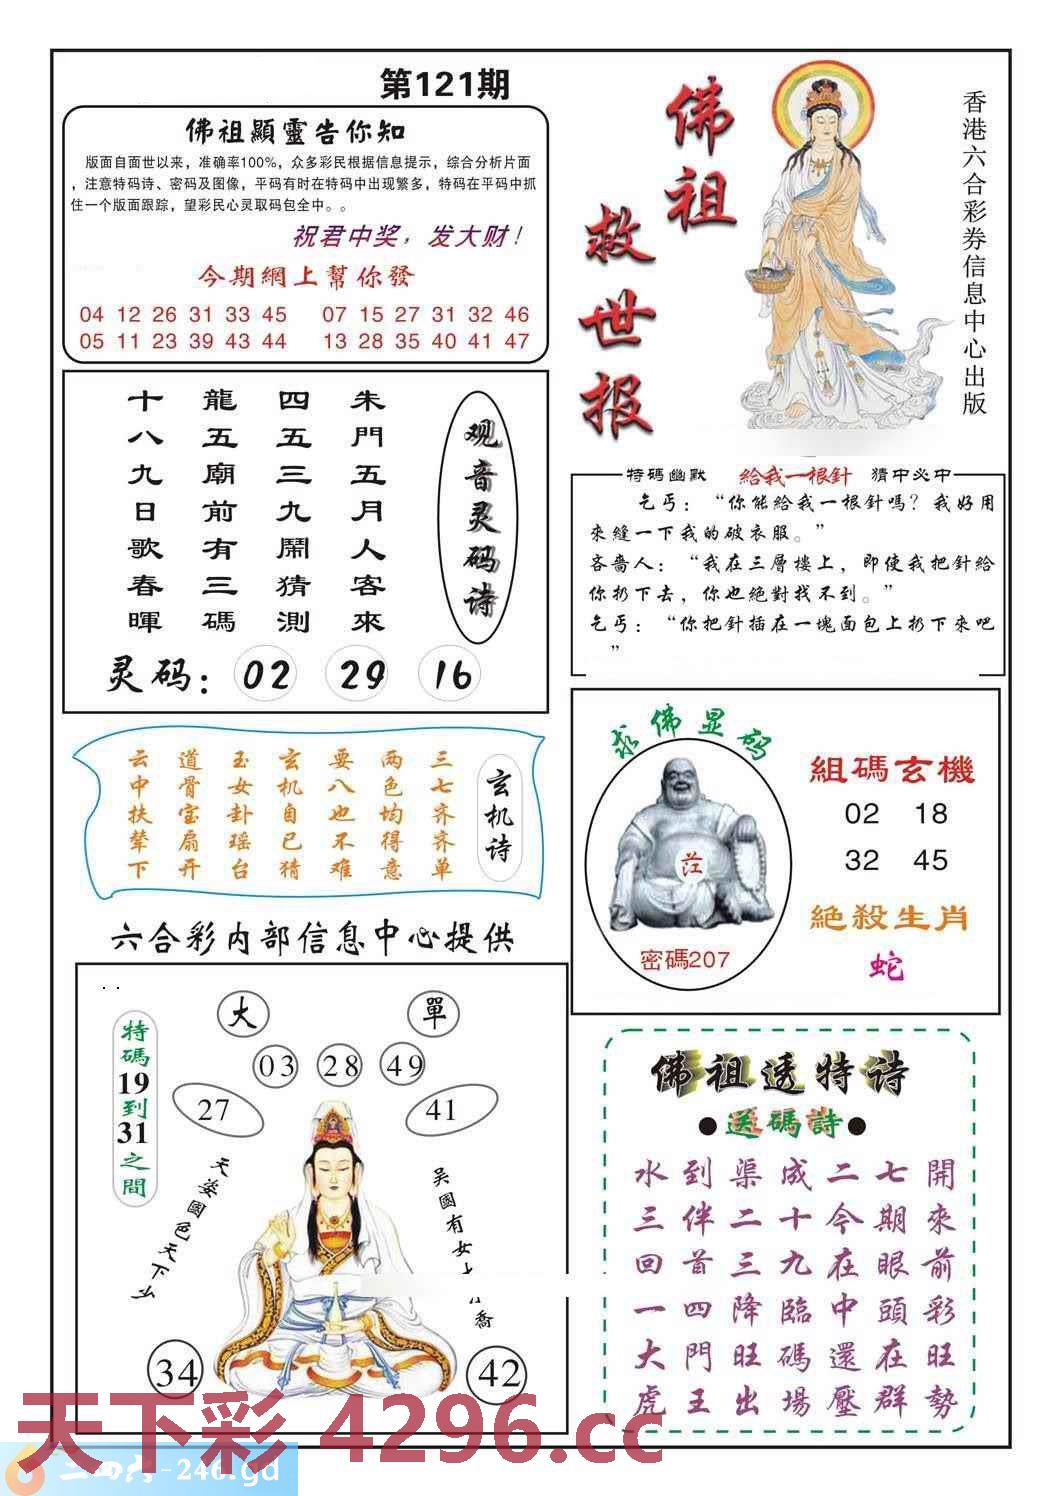 第121期
佛祖顯靈告你知
版面自面世以来，准确率100%，众多彩民根据信息提示，综合分析片面
，注意特码诗、密码及图像，平码有时在特码中出现繁多，特码在平码中抓
住一个版面跟踪，望彩民心灵取码包全中。。
祝君中奖，发大财！
今期網上幫你發
04 12 26 31 33 45 07 15 27 31 32 46
05 11 23 39 43 44 13 28 35 40 41 47
佛祖
救世报
香港六合彩券信息中心出版
观音灵码诗
朱門五月人客來
四五三九鬧猜測
龍五廟前有三碼
十八九日歌春暉
灵码： 02 29 16
特碼幽默 給我一根針 猜中必中
乞丐：“你能給我一根針嗎？我好用
來縫一下我的破衣服。”
吝嗇人：“我在三層樓上，即使我把針給
你扔下去，你也絕對找不到。”
乞丐：“你把針插在一塊面包上扔下來吧
”
玄机诗
三七齐齐单
两色均得意
要八也不难
玄机自已猜
玉女卦瑶台
道骨宝扇开
云中扶辇下
求佛显码
密碼207
組碼玄機
02 18
32 45
絕殺生肖
蛇
六合彩内部信息中心提供
大 單
03 28 49
27 41
特碼19到31之間
天姿國色天下
吳國有女
喬
34 42
佛祖透特诗
●送碼詩●
水到渠成二七開
三伴二十今期來
回首三九在眼前
一四降臨中頭彩
大門旺碼還在旺
虎王出場壓群勢
天下彩 4296.cc
二四六-246.gd